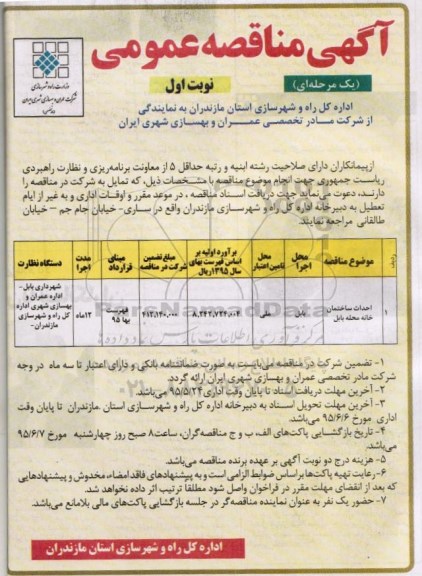 آگهی مناقصه عمومی
(یک مرحله‌ای)
نوبت اول
وزارت راه و شهرسازی
شرکت عمران و بهسازی شهری ایران
اداره کل راه و شهرسازی استان مازندران به نمایندگی
از شرکت مادر تخصصی عمران و بهسازی شهری ایران
از پیمانکاران دارای صلاحیت رشته ابنیه و رتبه حداقل ۵ از معاونت برنامه‌ریزی و نظارت راهبردی
ریاست جمهوری جهت انجام موضوع مناقصه با مشخصات ذیل، که تمایل به شرکت در مناقصه را
دارند، دعوت می‌نماید جهت دریافت اسناد مناقصه ، در موعد مقرر و اوقات اداری و به غیر از ایام
تعطیل به دبیرخانه اداره کل راه و شهرسازی مازندران واقع در ساری- خیابان جام جم – خیابان
طالقانی مراجعه نمایند.
ردیف موضوع مناقصه محل اجرا محل تامین اعتبار برآورد اولیه بر اساس فهرست بهای سال ۱۳۹۵ ریال مبلغ تضمین شرکت در مناقصه مبنای قرارداد مدت اجرا دستگاه نظارت
۱ احداث ساختمان خانه محله بابل بابل ملی ۸,۲۴۲,۷۲۴,۰۰۴ ۴۱۳,۱۴۰,۰۰۰ فهرست بها ۹۵ ۱۲ماه شهرداری بابل- اداره عمران و بهسازی شهری اداره کل راه و شهرسازی مازندران-
۱- تضمین شرکت در مناقصه می‌بایست به صورت ضمانتنامه بانکی و دارای اعتبار تا سه ماه در وجه
شرکت مادر تخصصی عمران و بهسازی شهری ایران ارائه گردد.
۲- آخرین مهلت دریافت اسناد تا پایان وقت اداری ۹۵/۵/۲۴ می‌باشد.
۳- آخرین مهلت تحویل اسناد به دبیرخانه اداره کل راه و شهرسازی استان مازندران تا پایان وقت
اداری مورخ ۹۵/۶/۶ می‌باشد.
۴- تاریخ بازگشایی پاکت‌های الف، ب و ج مناقصه‌گران، ساعت۸ صبح روز چهارشنبه مورخ ۹۵/۶/۷
می‌باشد.
۵- هزینه درج دو نوبت آگهی بر عهده برنده مناقصه می‌باشد.
۶-رعایت تهیه پاکت‌ها بر اساس ضوابط الزامی است و به پیشنهادهای فاقد امضاء، مخدوش و پیشنهادهایی
که بعد از انقضای مهلت مقرر در فراخوان واصل شود مطلقاً ترتیب اثر داده نخواهد شد.
۷- حضور یک نفر به عنوان نماینده مناقصه‌گر در جلسه بازگشایی پاکت‌های مالی بلامانع می‌باشد.
اداره کل راه و شهرسازی استان مازندران